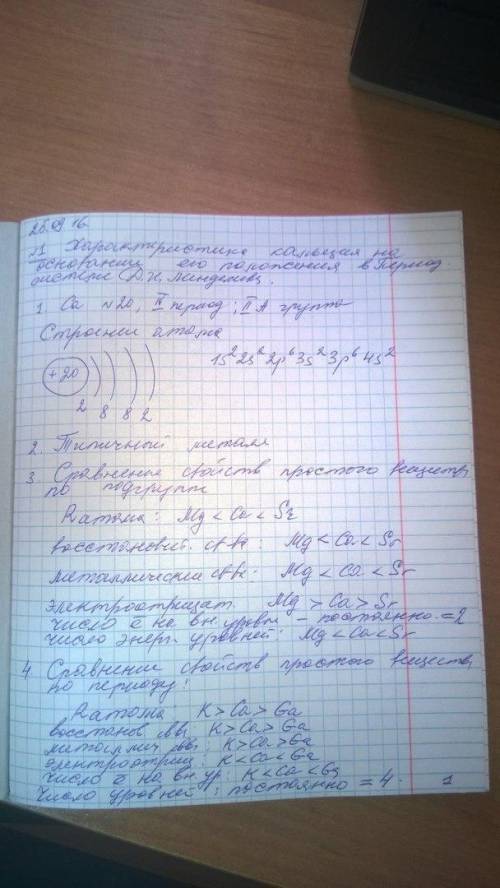 26.09.16
№1 Характеристика кальция на
основании его положения в Период.
системе Д.И. Менделеева.
1. Ca №20, IV период; II A группа
Строение атома
+20 1s² 2s² 2p⁶ 3s² 3p⁶ 4s²
2 8 8 2
2. Типичный металл
3. Сравнение свойств простого веществ
по подгруппе
R атома: Mg < Ca < Sr
восстановит. св-ва: Mg < Ca < Sr
металлические св-ва: Mg < Ca < Sr
электроотрицат. Mg > Ca > Sr
число ē на вн. уровне – постоянно = 2
число энерг. уровней: Mg < Ca < Sr
4. Сравнение свойств простого веществ
по периоду:
R атома: K > Ca > Ga
восстанов. св-ва: K > Ca > Ga
металлич. св-ва: K > Ca > Ga
электроотриц: K < Ca < Ga
число ē на вн. ур: K < Ca < Ga
Число уровней: постоянно = 4.
1